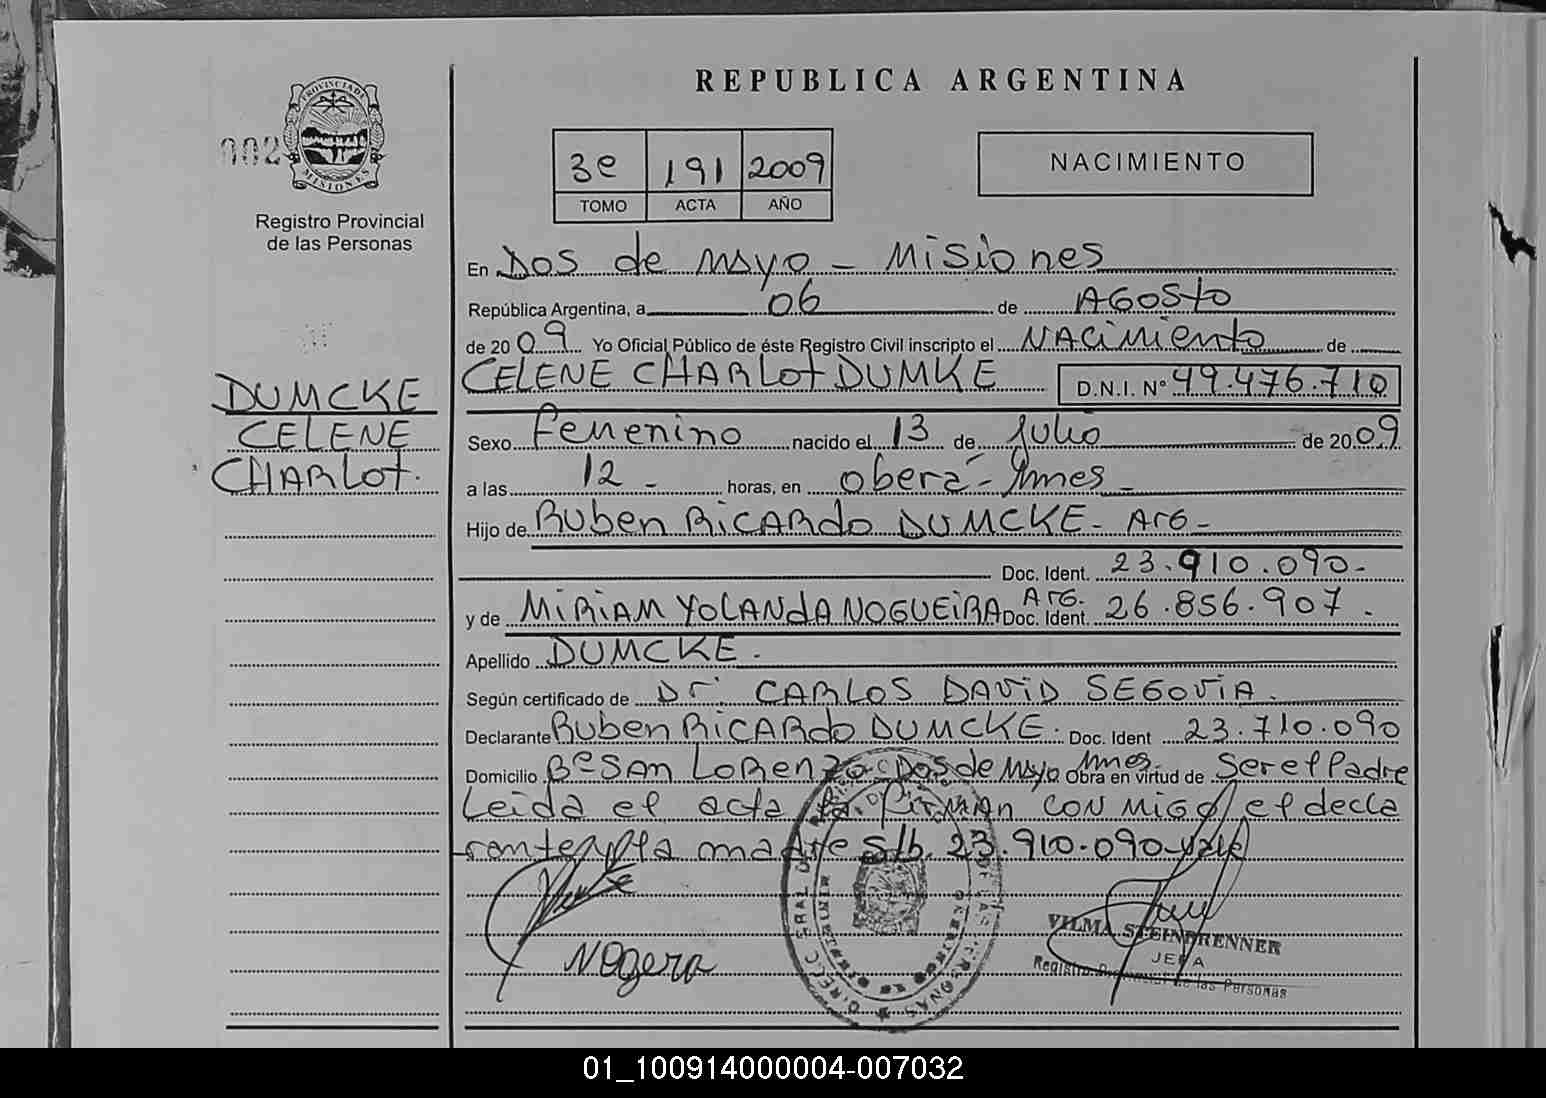 REPUBLICA ARGENTINA
002
PROVINCIA DE MISIONES
Registro Provincial
de las Personas
3e 191 2009
TOMO ACTA AÑO
NACIMIENTO
En Dos de Mayo - Misiones
República Argentina, a 06 de AGOSto
de 2009 Yo Oficial Público de éste Registro Civil inscripto el NACimiento de
CELENE CHARLot DUMKE D.N.I. Nº 49.476.710
DUMCKE
CELENE
CHARLot.
Sexo Femenino nacido el 13 de Julio de 2009
a las 12 - horas, en Oberá - Mnes -
Hijo de Ruben RiCARdo DUMCKE - Arg -
Doc. Ident. 23.910.090-
y de MiRiAM YOLANdA NOGUEiRA Arg. Doc. Ident. 26.856.907.
Apellido DUMCKE.
Según certificado de Dr. CARLOS DAViD SEGOViA.
Declarante Ruben RiCARdo DUMCKE. Doc. Ident 23.710.090
Domicilio Bº SAn LoRenzo - Dos de Mayo Mnes. Obra en virtud de Ser el Padre
Leida el acta la firman con migo el decla
rante y la madre S/b. 23.910.090 - Vale
Nogera
VILMA STEINBRENNER
JEFA
Registro Provincial de las Personas
01_100914000004-007032